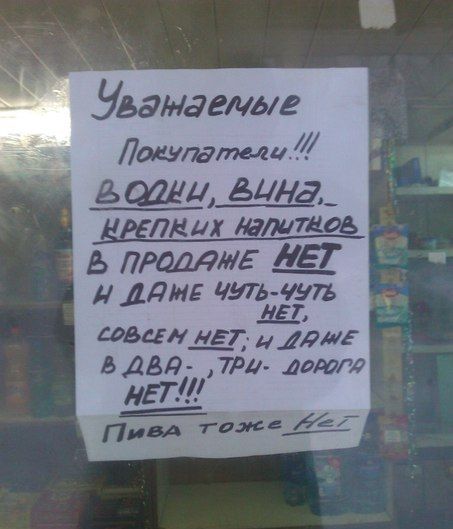 Уважаемые
Покупатели!!!
ВОДКИ, ВИНА,
КРЕПКИХ НАПИТКОВ
В ПРОДАЖЕ НЕТ
И ДАЖЕ ЧУТЬ-ЧУТЬ
НЕТ,
СОВСЕМ НЕТ; И ДАЖЕ
В ДВА-, ТРИ- ДОРОГА
НЕТ!!!
ПИВА ТОЖЕ НЕТ